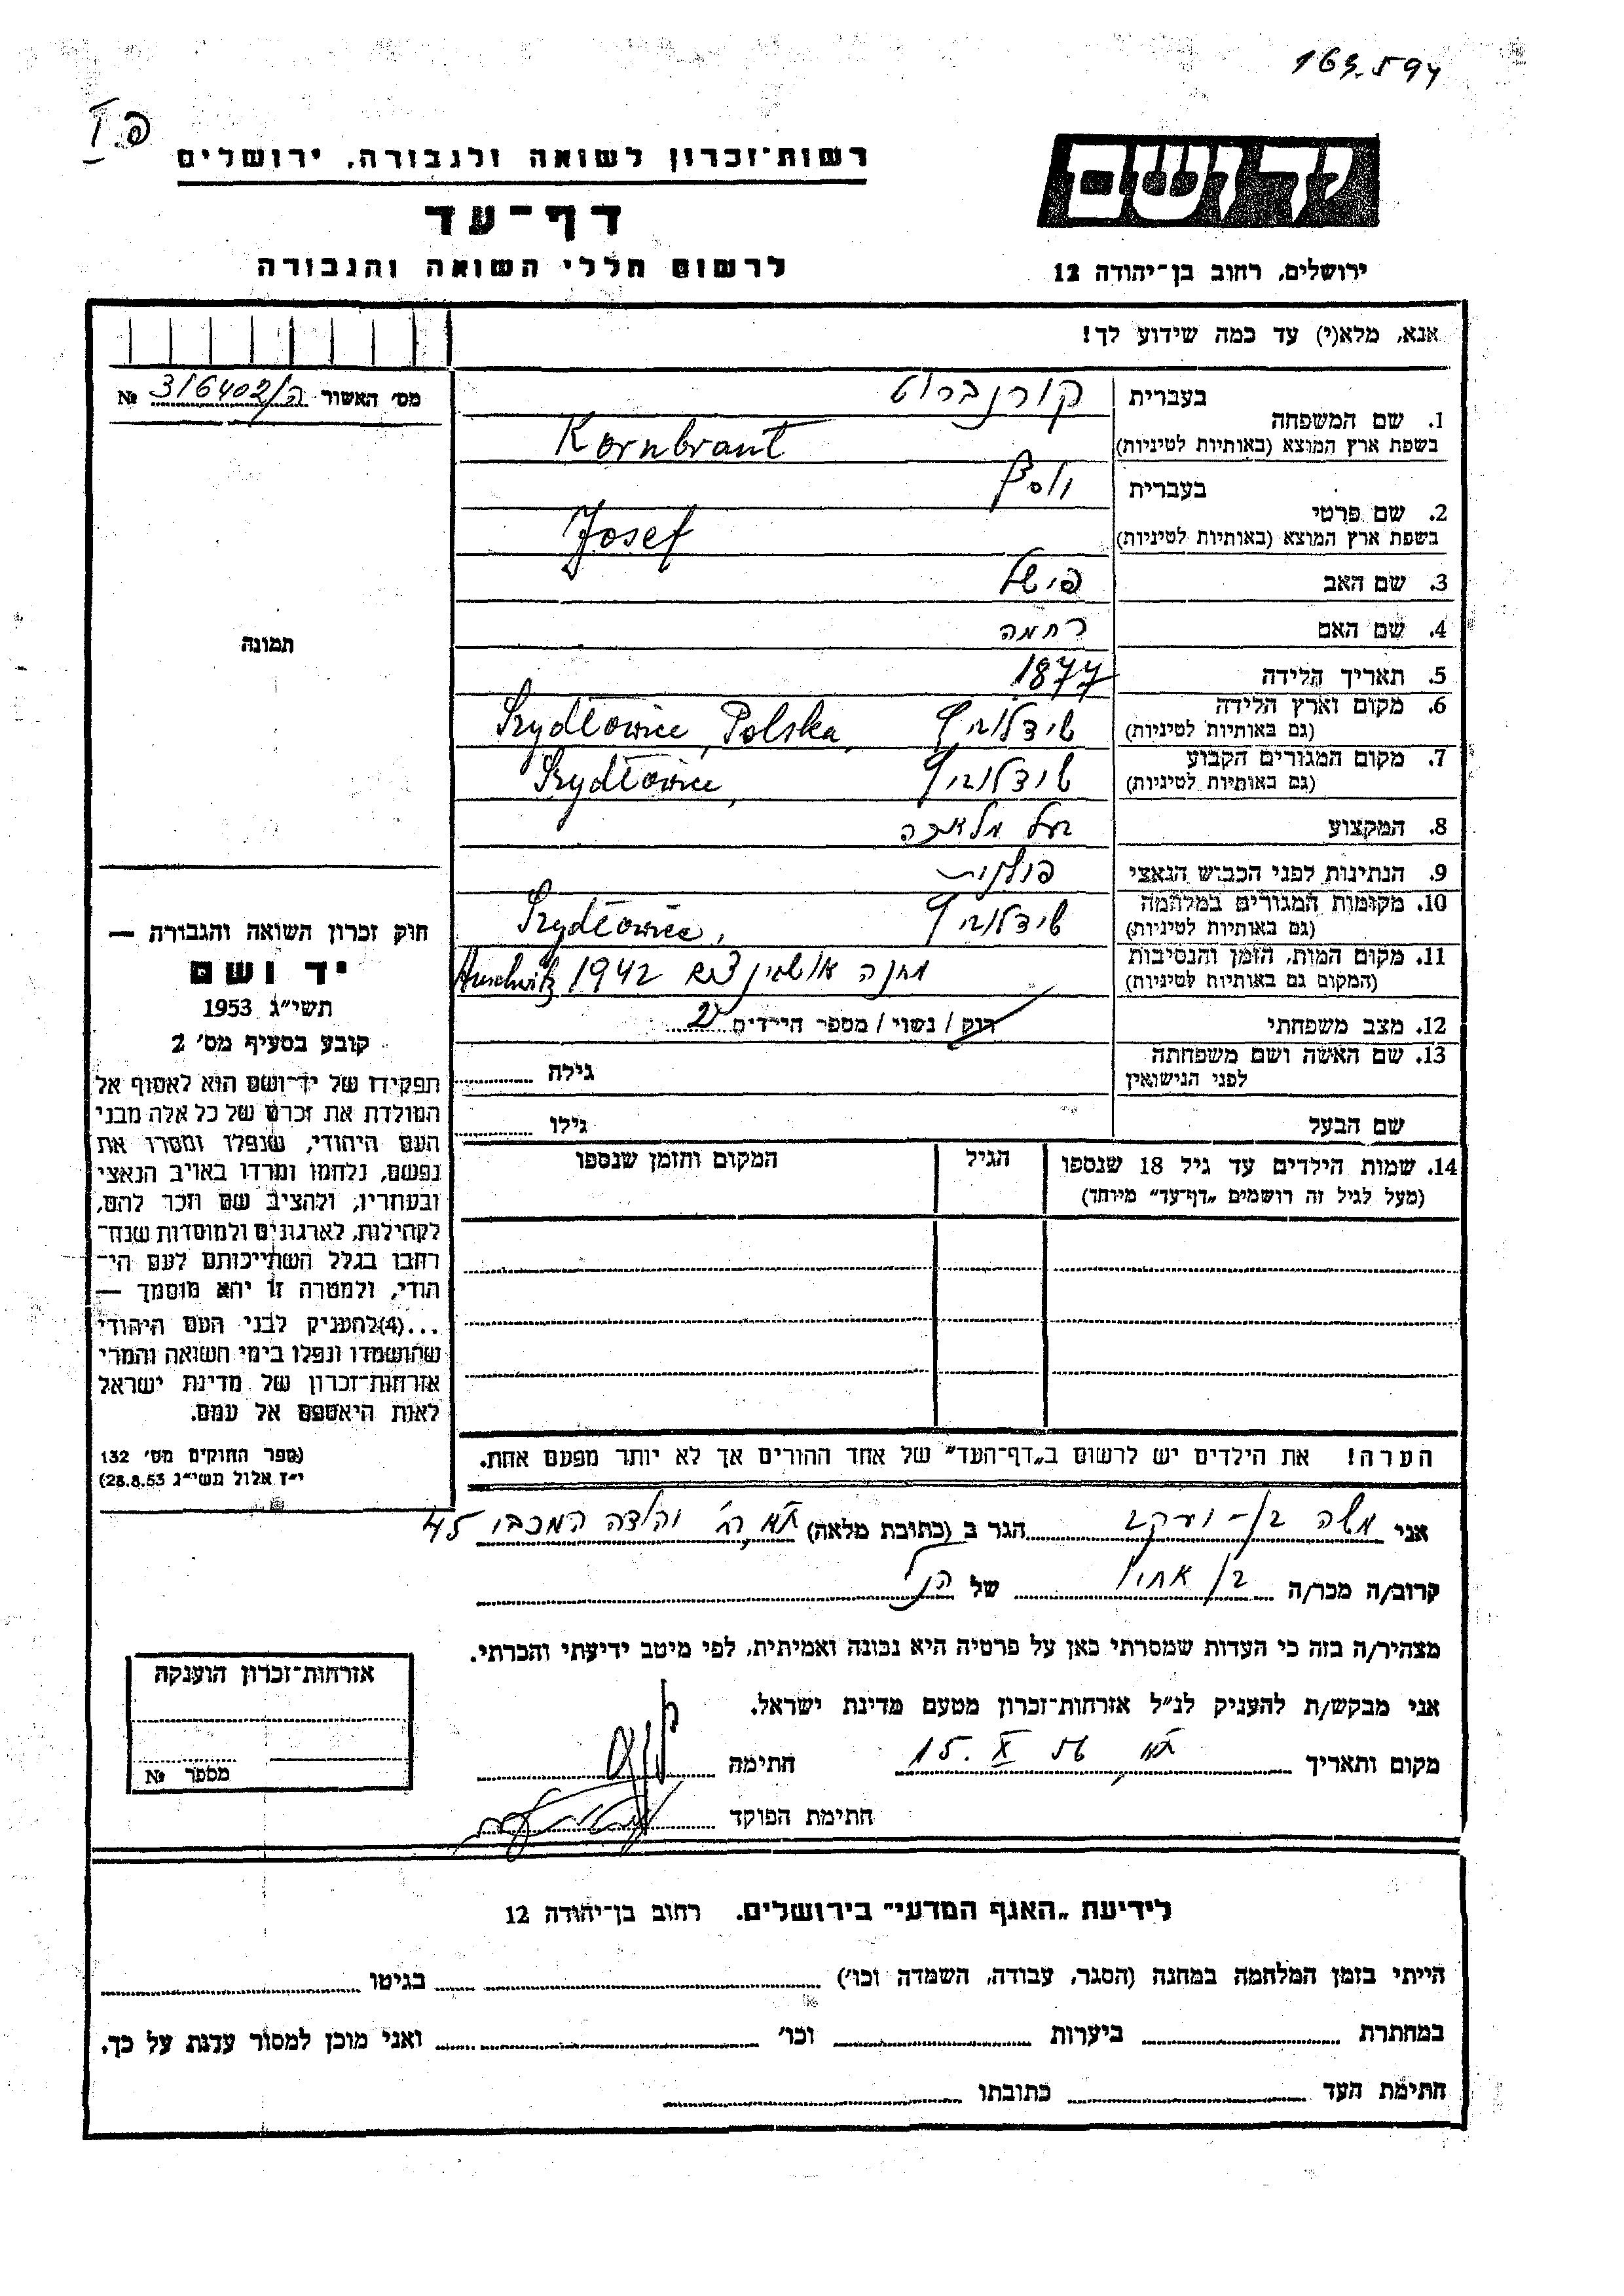 163594
פ.I
רשות־זכרון לשואה ולגבורה, ירושלים
יד ושם
דף־עד
לרשום חללי השואה והגבורה
ירושלים, רחוב בן־יהודה 12
אנא, מלא(י) עד כמה שידוע לך!
מס׳ האשור ה/316402 №
1. שם המשפחה
בעברית קורנברוט
בשפת ארץ המוצא (באותיות לטיניות) Kornbraut
2. שם פרטי
בעברית יוסף
בשפת ארץ המוצא (באותיות לטיניות) Josef
3. שם האב פישל
4. שם האם רחמה
5. תאריך הלידה 1877
6. מקום וארץ הלידה שידלוביץ Szydłowiec, Polska,
(גם באותיות לטיניות)
7. מקום המגורים הקבוע שידלוביץ Szydłowiec,
(גם באותיות לטיניות)
8. המקצוע בעל מלאכה
9. הנתינות לפני הכבוש הנאצי פולנית
10. מקומות המגורים במלחמה שידלוביץ Szydłowiec,
(גם באותיות לטיניות)
11. מקום המות, הזמן והנסיבות מחנה 1942 Auschwitz
(המקום גם באותיות לטיניות)
12. מצב משפחתי רוק / נשוי / מספר הילדים 2
13. שם האשה ושם משפחתה גילה
לפני הנישואין
שם הבעל גילו
14. שמות הילדים עד גיל 18 שנספו הגיל המקום והזמן שנספו
(מעל לגיל זה רושמים „דף־עד” מיוחד)
הערה! את הילדים יש לרשום ב„דף־העד” של אחד ההורים אך לא יותר מפעם אחת.
תמונה
חוק זכרון השואה והגבורה —
יד ושם
תשי״ג 1953
קובע בסעיף מס׳ 2
תפקידו של יד־ושם הוא לאסוף אל
המולדת את זכרם של כל אלה מבני
העם היהודי, שנפלו ומסרו את
נפשם, נלחמו ומרדו באויב הנאצי
ובעוזריו, ולהציב שם וזכר להם,
לקהילות, לארגונים ולמוסדות שנח־
רחבו בגלל השתייכותם לעם הי־
הודי, ולמטרה זו יהא מוסמך —
...(4)להעניק לבני העם היהודי
שהושמדו ונפלו בימי השואה והמרי
אזרחות־זכרון של מדינת ישראל
לאות היאספם אל עמם.
(ספר החוקים מס׳ 132
י״ז אלול תשי״ג 28.8.53)
אני משה בן-יעקב הגר ב (כתובת מלאה) יהודה המכבי 45
קרוב/ה מכר/ה בן אחיו של הנ״ל
מצהיר/ה בזה כי העדות שמסרתי כאן על פרטיה היא נכונה ואמיתית, לפי מיטב ידיעתי והכרתי.
אני מבקש/ת להעניק לנ״ל אזרחות־זכרון מטעם מדינת ישראל.
מקום ותאריך 15. X 56 חתימה
חתימת הפוקד
אזרחות־זכרון הוענקה
מספר №
לידיעת „האגף המדעי” בירושלים. רחוב בן־יהודה 12
הייתי בזמן המלחמה במחנה (הסגר, עבודה, השמדה וכו׳) בגיטו
במחתרת ביערות וכו׳ ואני מוכן למסור עדות על כך.
חתימת העד כתובתו